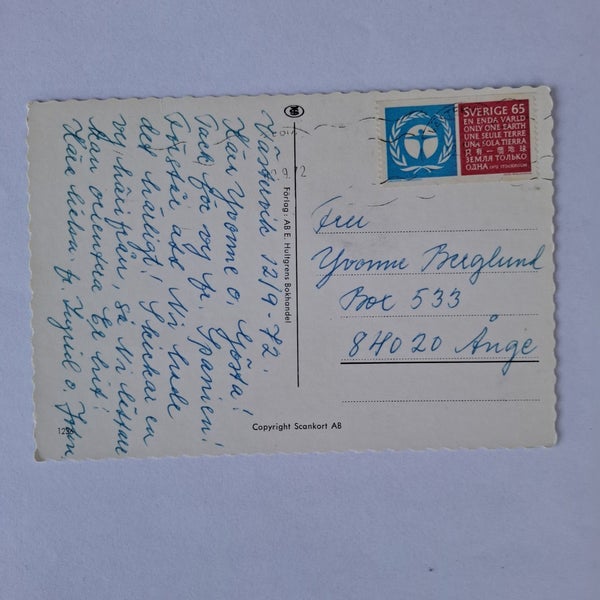 Västervik 12/9-72.
Kära Yvonne o. Gösta!
Tack för vy fr. Spanien!
Förstår att Ni hade
det härligt! Skickar en
vy härifrån, så Ni lättare
kan orientera Er hit!
fr. Ingrid o. John
Förlag: AB E. Hultgrens Bokhandel
Copyright Scankort AB
SVERIGE 65
EN ENDA VÄRLD
ONLY ONE EARTH
UNE SEULE TERRE
UNA SOLA TIERRA
只有一個地球
ЗЕМЛЯ ТОЛЬКО
ОДНА 1972 STOCKHOLM
Fru
Yvonne Berglund
Box 533
84020 Ånge